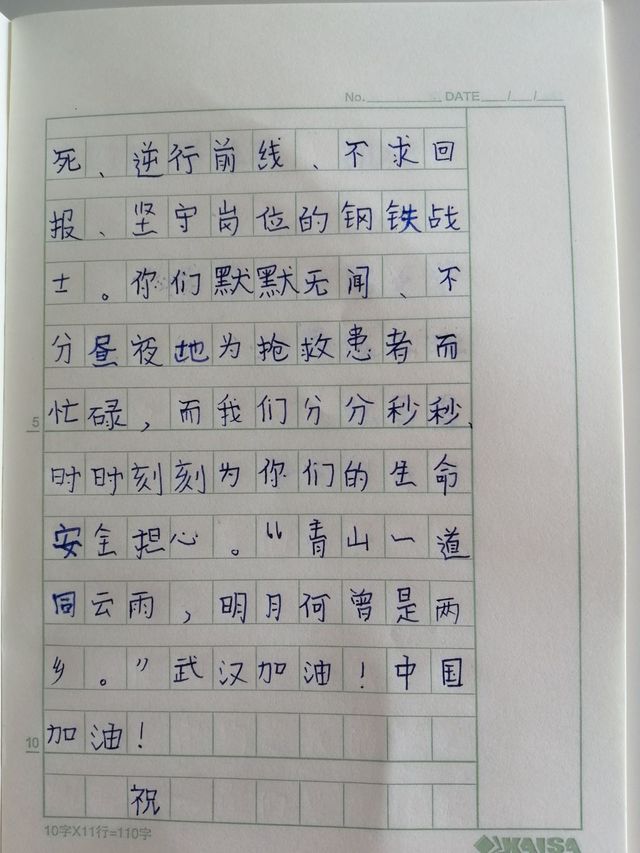 No. DATE / /
死、逆行前线、不求回
报、坚守岗位的钢铁战
士。你们默默无闻、不
分昼夜地为抢救患者而
5
忙碌，而我们分分秒秒、
时时刻刻为你们的生命
安全担心。“青山一道
同云雨，明月何曾是两
乡。”武汉加油！中国
10
加油！
祝
10字X11行=110字
KAISA